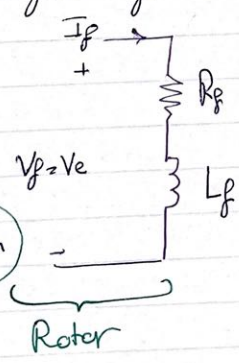 If
+
Rf
Vf = Ve
Lf
-
Rotor